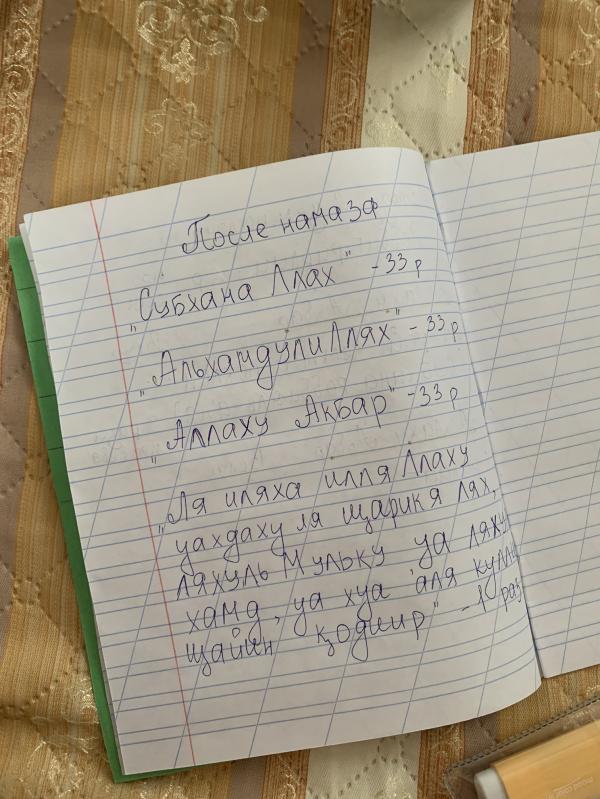 После намаза
"Субхана Ллах" - 33 р
"АльхамдулиЛлях" - 33 р
"Аллаху Акбар" - 33 р
"Ля иляха илля Ллаху
уахдаху ля щарикя лях,
ляхуль Мульку уа ляхул
хамд, уа хуа 'аля кулли
щайин қодиир" - 1 раз